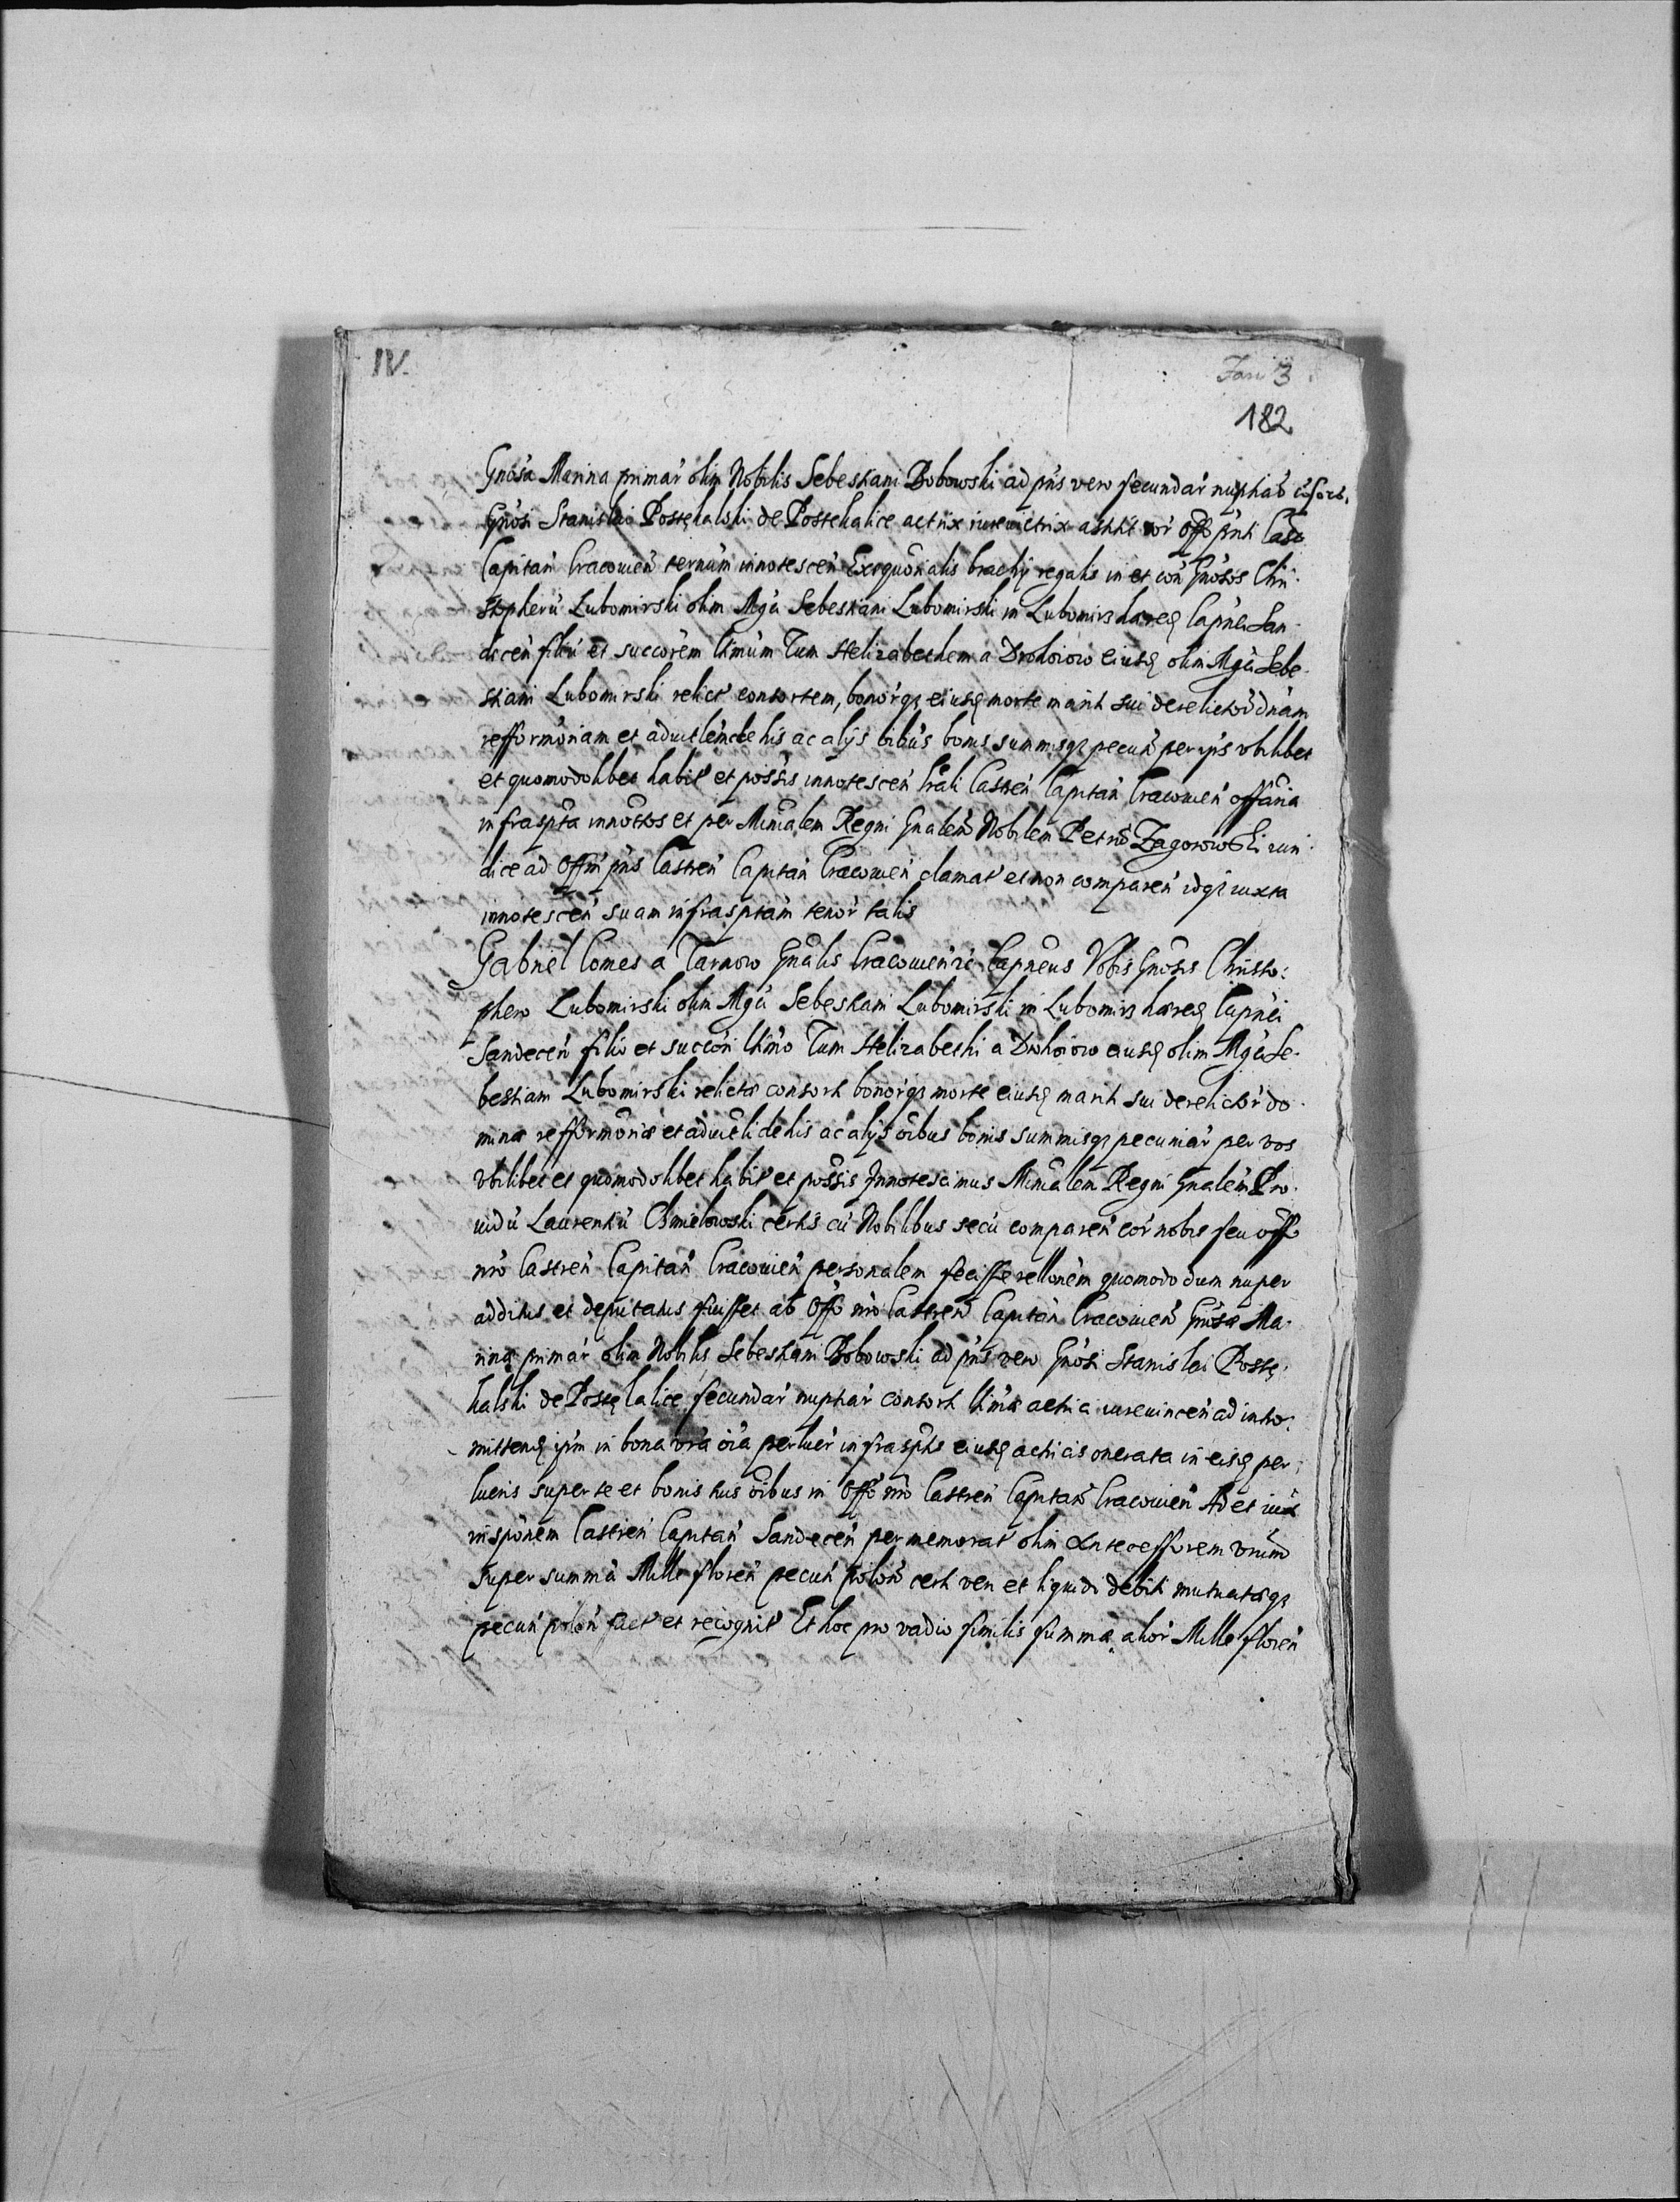 IV.
Fasc 3
182
Gnosa Marina primar olim Nobilis Sebestiani Bobowski ad pns vero secundar nuptiar cosort.
Gnosi Stanislai Postękalski de Postekalice actrix iurevictrix astitit cor offo pnti Castr
Capitan Cracouien ternum innotescen Exequonialis brachij regalis in et con Gnosos Chri
stopherū Lubomirski olim Mgci Sebestiani Lubomirski in Lubomirz hæred Capnei San
decen filiū et succorem ltimum Tum Helizabethem a Drohoiow eiusd olim Mgci Sebe
stiani Lubomirski relict consortem, bonorqz eiusd morte mariti sui derelictor dnam
refformoriam et aduitlem de his ac alijs oibus bonis summisqz pecun per ipsos vbilibet
et quomodolibet habit et possis innotescen lrali Castren Capitan Cracouien offana
infraspta innottos et per Minialem Regni Gnalem Nobilem Petrū Zagorowski iuri
dice ad Offm pns Castren Capitan Cracouien clamat et non comparen idqz iuxta
innotescen suam infrasptam tenor talis
Gabriel Comes a Tarnow Gnalis Cracouien zc Capneus Vobis Gnosis Christo
phero Lubomirski olim Mgci Sebestiani Lubomirski in Lubomirz hæred Capnei
Sandecen filio et succori ltimo Tum Helizabethi a Drohoiow eiusd olim Mgci Se
bestiani Lubomirski relictæ consorti bonorqz morte eiusd mariti sui derelictor do
minæ refformoriæ et aduitli de his ac alijs oibus bonis summisqz pecuniar per vos
vbilibet et quomodolibet habit et possis Innotescimus Minialem Regni Gnalem Pro
uidū Laurentiū Chmielowski certis cū Nobilibus secū comparen cor nobis seu offo
nro Castren Capitan Cracouien personalem fecisse rellonem quomodo dum nuper
additus et deputatus fuisset ab Offo nro Castren Capitan Cracouien Gnosæ Ma
rinæ primar olim Nobilis Sebestiani Bobowski ad pns vero Gnosi Stanislai Postę
kalski de Postękalice secundar nuptiar consorti ltimæ actrici iureuincen ad intro
mittend ipm in bona vra oia per luer infrasptis eiusd actricis onerata in eisd per
lueris super te et bonis tuis oibus in Offo nro Castren Capitan Cracouien Ad et iuxta
inspōnem Castren Capitan Sandecen per memorat olim Antecessorem vrum
super summā Mille floren pecun polon certi veri et liquidi debiti mutuatiqz
pecun polon fact et recognit Et hoc pro vadio similis summæ alior Mille floren